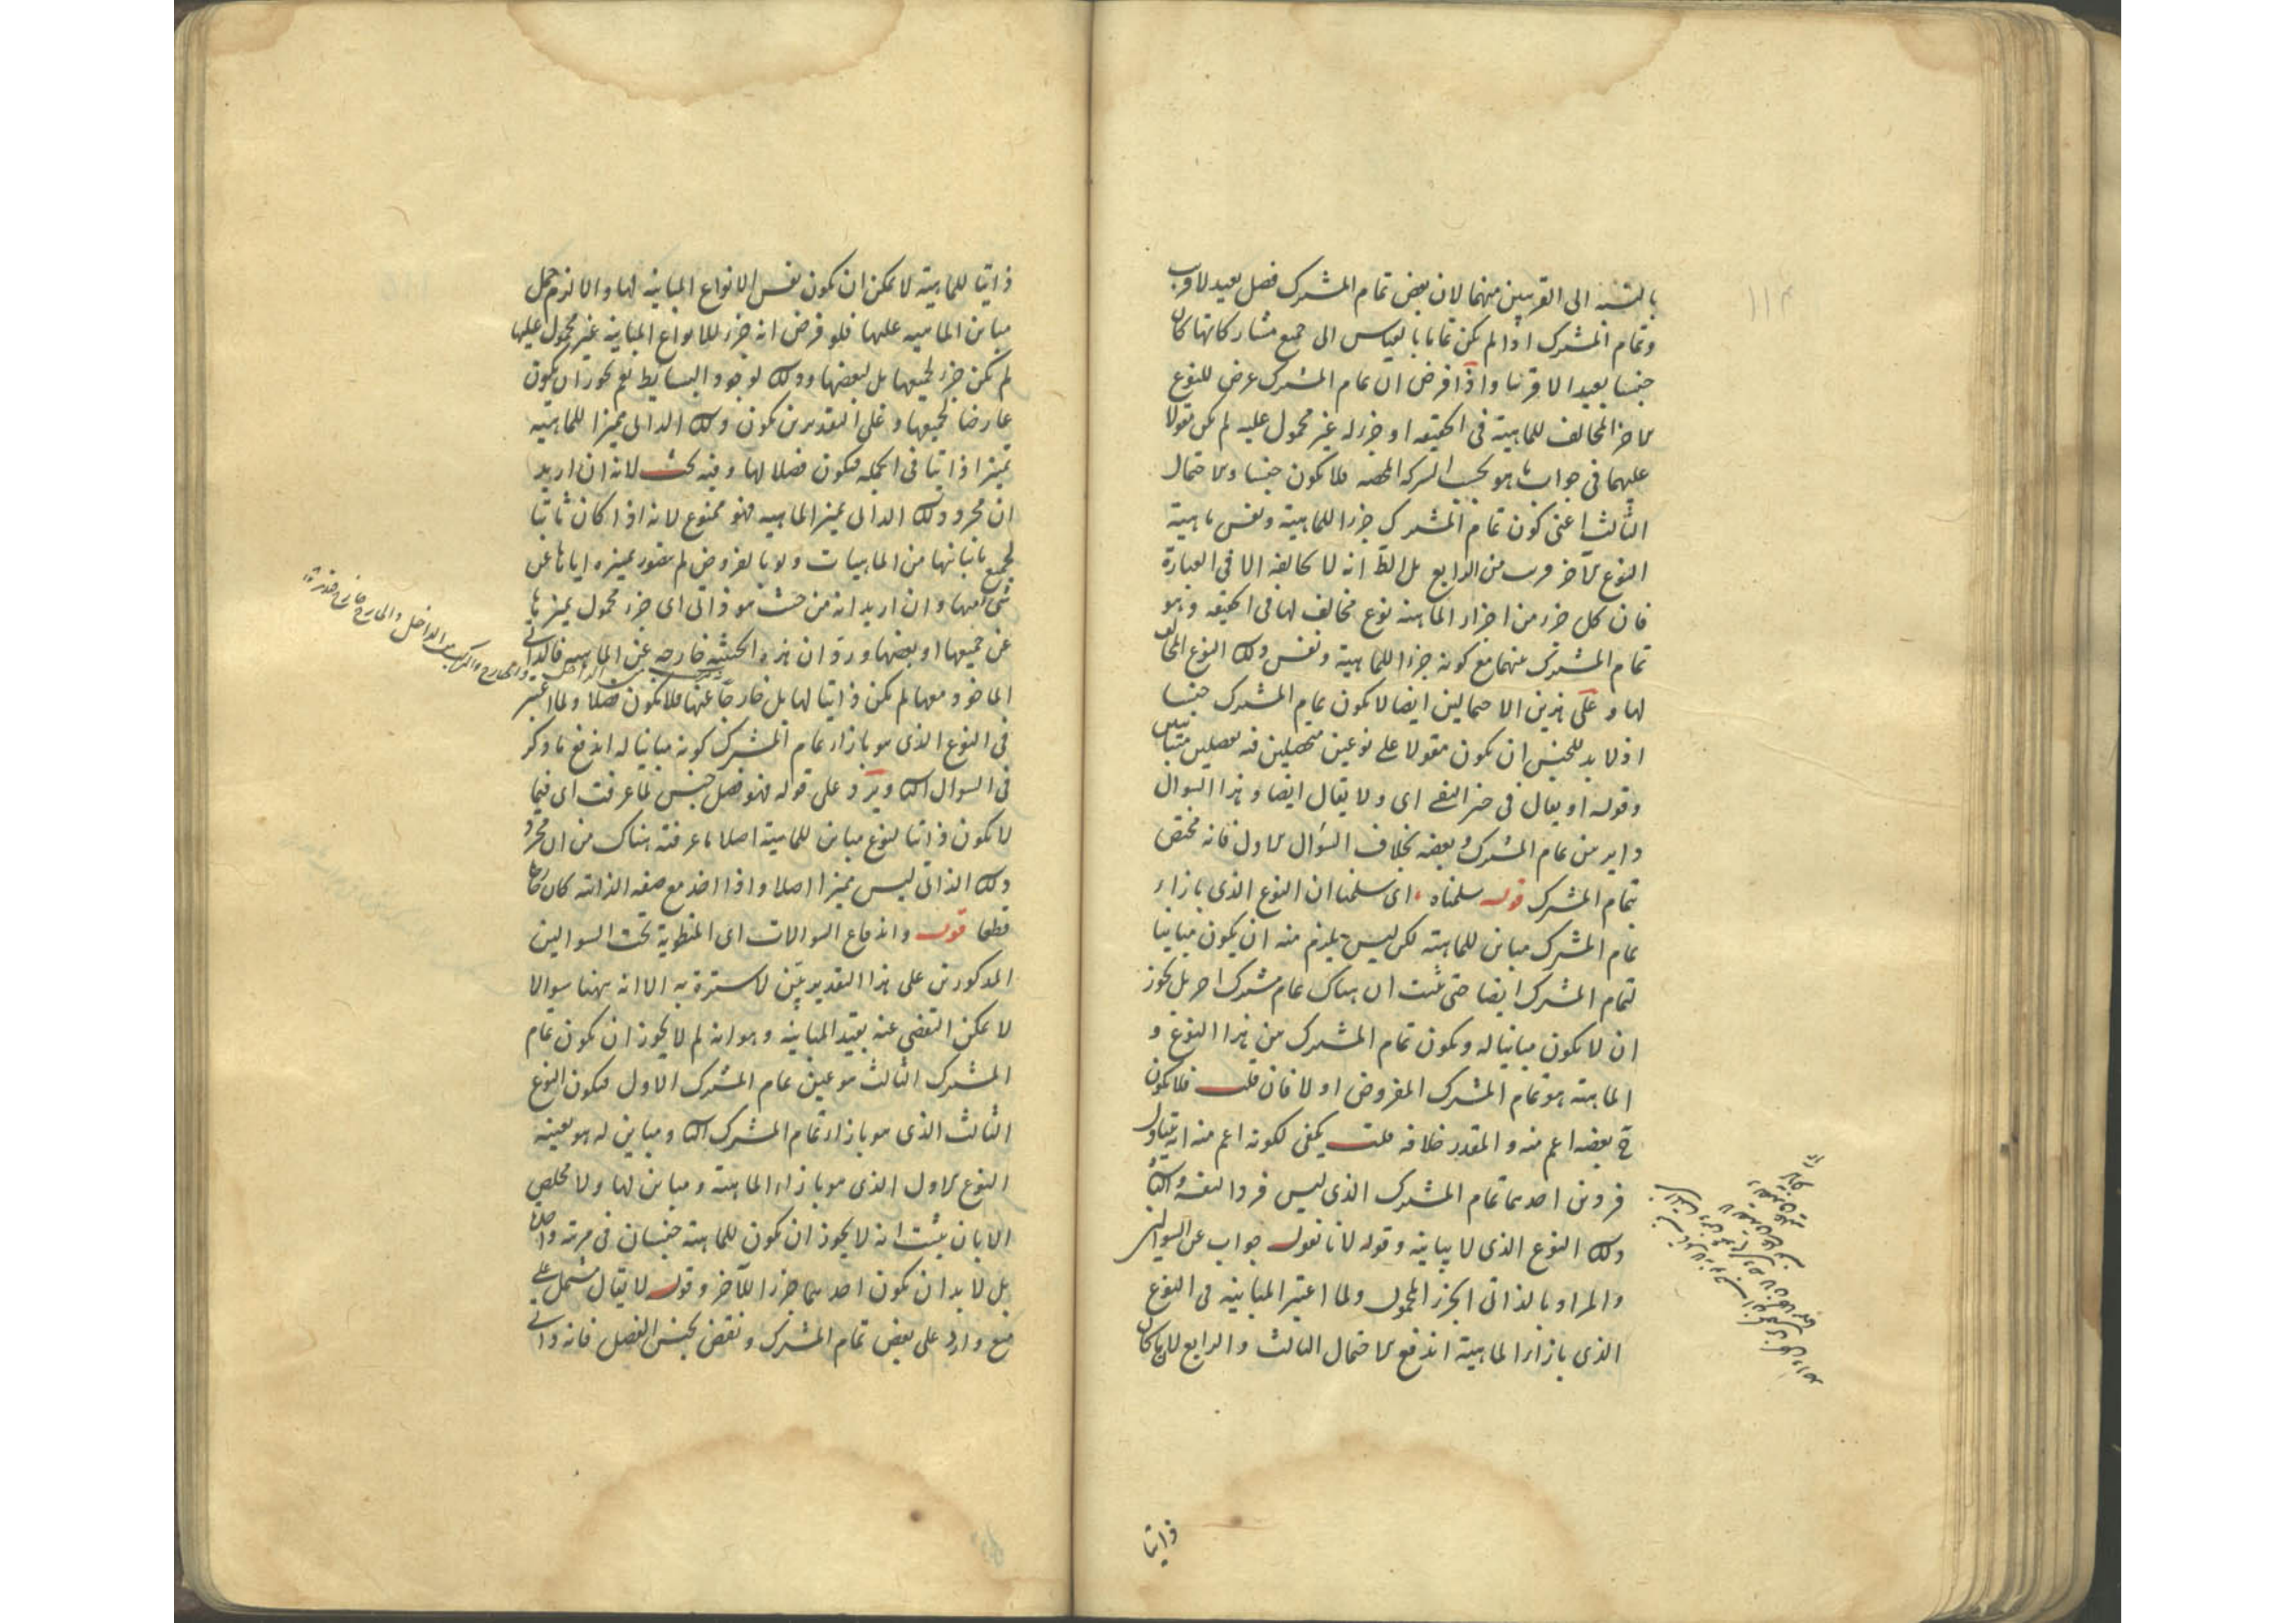 بالنسبة الى القريبين منهما لان بعض تمام المشترك فصل بعيد لا قريب
وتمام المشترك اذا لم يكن تماما بالقياس الى جميع مشاركاتها كان
جنسا بعيدا لا قريبا واذا فرض ان تمام المشترك عرض للنوع
الاخر المخالف للماهية فى الحقيقة او جزء له غير محمول عليه لم يكن مقولا
عليهما فى جواب ما هو بحسب الشركة المحضة فلا يكون جنسا والاحتمال
الثالث اعنى كون تمام المشترك جزءا للماهية ونفس ماهية
النوع الاخر قريب من الرابع بل الظ انه لا يخالفه الا فى العبارة
فان كل جزء من اجزاء الماهية نوع مخالف لها فى الحقيقة وهو
تمام المشترك بينهما مع كونه جزءا للماهية ونفس ذلك النوع المخالف
لها وعلى هذين الاحتمالين ايضا لا يكون تمام المشترك جنسا
اذ لا بد للجنس ان يكون مقولا على نوعين متحصلين فيه بفصلين متباينين
وقوله او يقال فى حيز النفى اى ولا يقال ايضا وهذا السوال
داير بين تمام المشترك وبعضه بخلاف السؤال الاول فانه مختص
بتمام المشترك قوله سلمناه اى سلمنا ان النوع الذى بازاء
تمام المشترك مباين للماهية لكن ليس يلزم منه ان يكون مباينا
لتمام المشترك ايضا حتى يثبت ان هناك تمام مشترك اخر بل يجوز
ان لا يكون مباينا له ويكون تمام المشترك بين هذا النوع و
الماهية هو تمام المشترك المفروض اولا فان قلت فلا يكون
ح بعضه اعم منه والمقدر خلافه قلت يكفى لكونه اعم منه انه يتناول
فردين احدهما تمام المشترك الذى ليس فردا لنفسه والثانى
ذلك النوع الذى لا يباينه وقوله لانا نقول جواب عن السوالين
والمراد بالذاتى الجزء المحمول ولما اعتبر المباينة فى النوع
الذى بازاء الماهية اندفع الاحتمال الثالث والرابع لان ما كان
ذاتيا
ذاتيا للماهية لا يمكن ان يكون نفس الانواع المباينة لها والا لزم حمل
مباين الماهية عليها فلو فرض انه جزء للانواع المباينة غير محمول عليها
لم يكن جزءا لجميعها بل لبعضها وذلك لوجود البسايط نعم يجوز ان يكون
عارضا لجميعها وعلى التقديرين يكون ذلك الذاتى مميزا للماهية
تميزا ذاتيا فى الجملة فيكون فصلا لها وفيه بحث لانه ان اريد
ان مجرد ذلك الذاتى يميز الماهية فهو ممنوع لانه اذا كان ثابتا
لجميع مبايناتها من الماهيات ولو بالعروض لم يتصور تميزه اياها عن
شئ منها وان اريد انه من حيث هو ذاتى اى جزء محمول يميزها
عن جميعها او بعضها ورد ان هذه الحيثية خارجة عن الماهية فالذاتى
الماخوذ معها لم يكن ذاتيا لها بل خارجا عنها فلا يكون فصلا ولما اعتبر
فى النوع الذى هو بازاء تمام المشترك كونه مباينا له اندفع ما ذكر
فى السوال الثانى ويرد على قوله فهو فصل جنس لما عرفت اى فيما
لا يكون ذاتيا لنوع مباين للماهية اصلا ما عرفته هناك من ان مجرد
ذلك الذاتى ليس مميزا اصلا واذا اخذ مع صفة الذاتية كان خارجا
قطعا قوله واندفاع السوالات اى المنطوية تحت السوالين
المذكورين على هذا التقدير بين لا سترة به الا انه ههنا سوالا
لا يمكن التفصى عنه بقيد المباينة وهو انه لم لا يجوز ان يكون تمام
المشترك الثالث هو عين تمام المشترك الاول فيكون النوع
الثالث الذى هو بازاء تمام المشترك الثانى ومباين له هو بعينه
النوع الاول الذى هو بازاء الماهية ومباين لها ولا مخلص
الا بان يثبت انه لا يجوز ان يكون للماهية جنسان فى مرتبة واحدة
بل لا بد ان يكون احدهما جزءا للآخر وقوله لا يقال مشتمل على
منع وارد على بعض تمام المشترك ونقض بجنس الفصل فانه ذاتى
والمركب من الداخل والخارج خارج